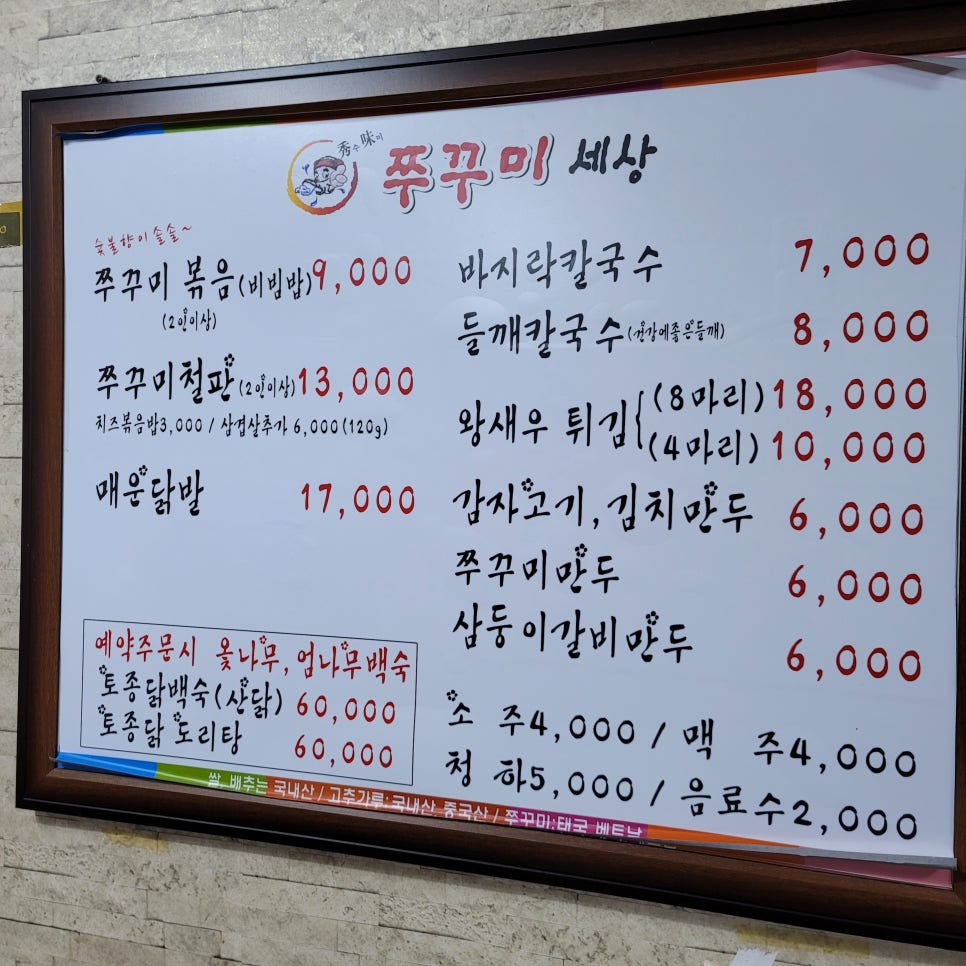 秀수味미
쭈꾸미 세상
숯불향이솔솔~
쭈꾸미 볶음(비빔밥)9,000
(2인이상)
쭈꾸미철판(2인이상)13,000
치즈볶음밥3,000 / 삼겹살추가 6,000(120g)
매운닭발 17,000
예약주문시 옻나무, 엄나무백숙
토종닭백숙(산닭) 60,000
토종닭 도리탕 60,000
바지락칼국수 7,000
들깨칼국수(건강에좋은들깨) 8,000
왕새우 튀김 (8마리) 18,000
(4마리) 10,000
감자고기, 김치만두 6,000
쭈꾸미만두 6,000
삼둥이갈비만두 6,000
소 주4,000 / 맥 주4,000
청 하5,000 / 음료수2,000
쌀, 배추는 국내산 / 고추가루:국내산, 중국산 / 쭈꾸미:태국 베트남